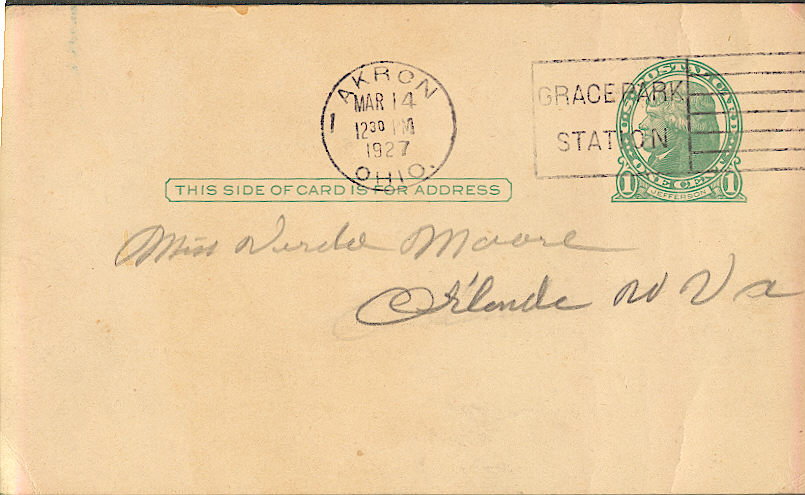 AKRON
MAR 14
1230 PM
1927
OHIO.
1
GRACE PARK
STATION
U.S. POSTAL CARD
ONE CENT
1 JEFFERSON 1
THIS SIDE OF CARD IS FOR ADDRESS
Miss Verda Moore
Orlando W Va